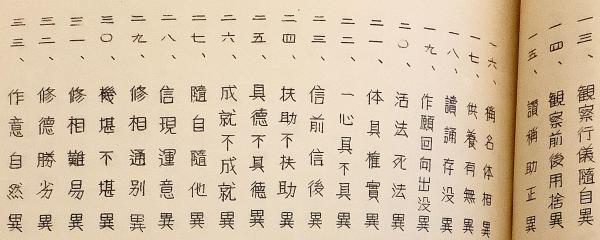 一三、觀察行儀隨自異
一四、觀察前後用捨異
一五、讚稱助正異
一六、稱名体相異
一七、供養有無異
一八、讀誦存没異
一九、作願回向出没異
二〇、活法死法異
二一、体具権實異
二二、一心具不具異
二三、信前信後異
二四、扶助不扶助異
二五、具德不具德異
二六、成就不成就異
二七、隨自隨他異
二八、信現運意異
二九、修相通別異
三〇、機堪不堪異
三一、修相難易異
三二、修德勝劣異
三三、作意自然異